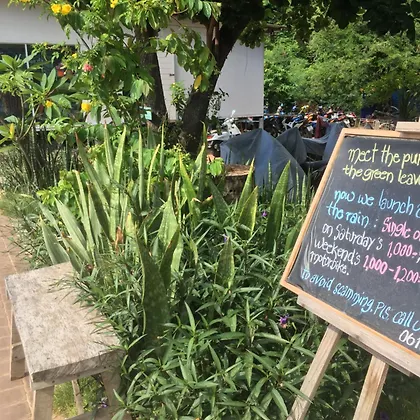 meet the
the green
now we launch
the rain: Single
on Saturday's 1,000
weekend's 1,000-1,200
motorbike.
to avoid scamming. pls. call
061